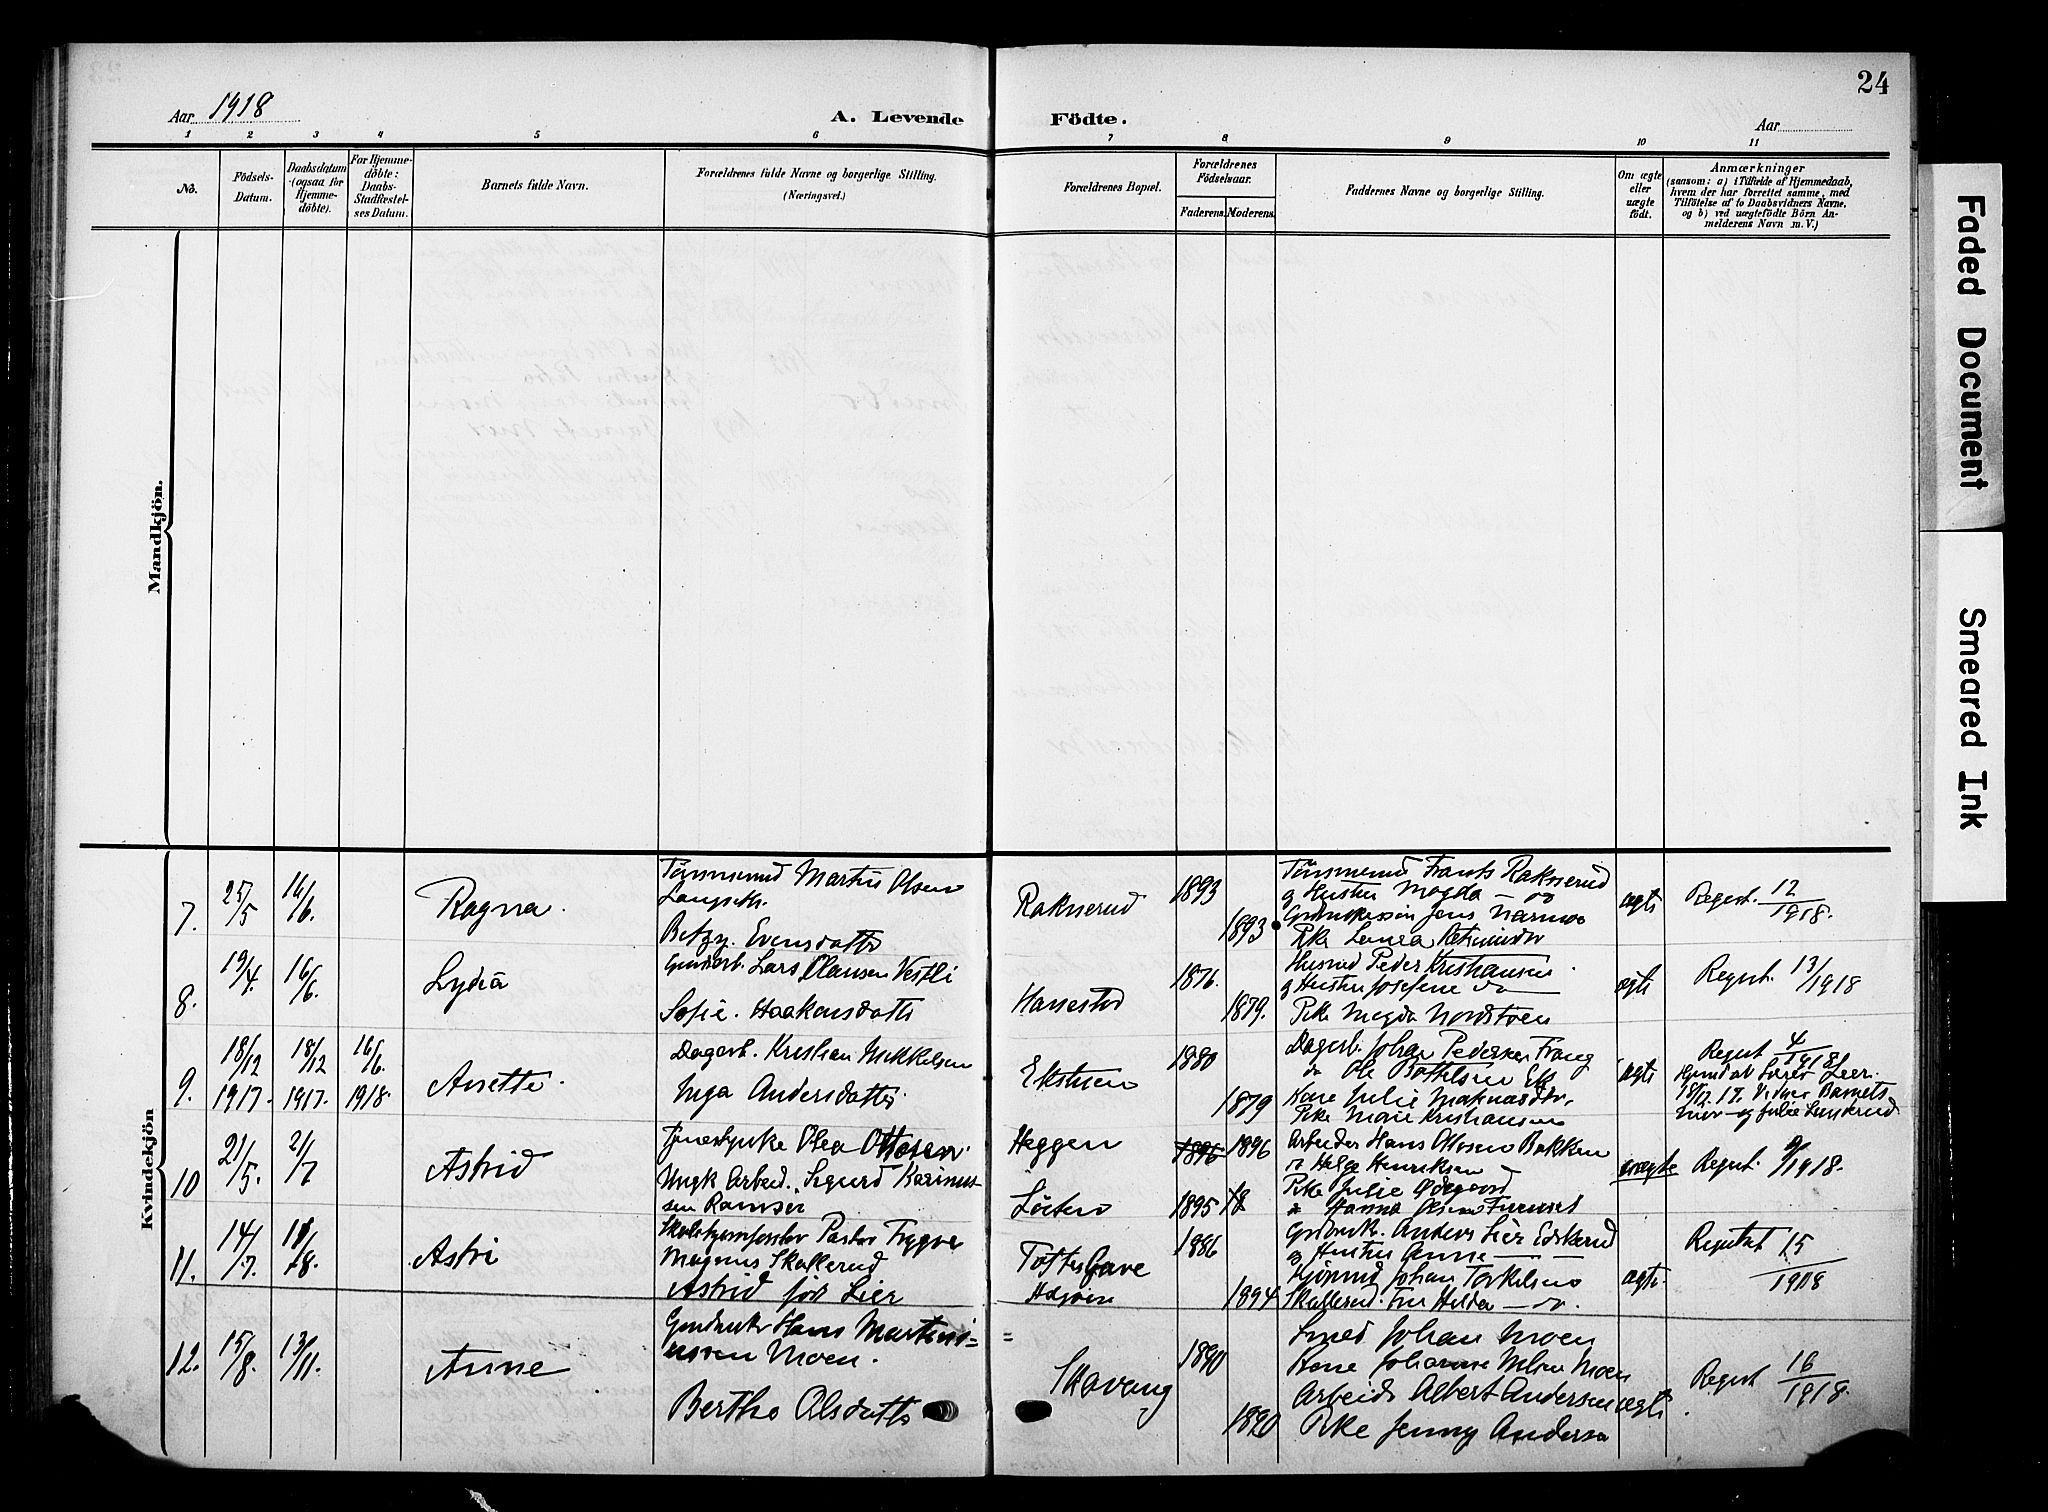 24
Aar 1918
A. Levende
Födte.
Aar
1 2 3 4 5 6 7 8 9 10 11
No.
Födsels-
Datum.
Daabsdatum
(ogsaa for
Hjemme-
döbte).
For Hjemme-
döbte:
Daabs-
Stadfæstel-
ses Datum.
Barnets fulde Navn.
Forældrenes fulde Navne og borgerlige Stilling.
(Næringsvei.)
Forældrenes Bopæl.
Forældrenes
Födselsaar.
Faderens.
Moderens.
Faddernes Navne og borgerlige Stilling.
Om ægte
eller
uægte
födt.
Anmærkninger
(saasom: a) i Tilfælde af Hjemmedaab,
hvem der har forrettet samme, med
Tilföielse af to Daabsvidners Navne,
og b) ved uægtefödte Börn An-
melderens Navn m. V.)
Mandkjön.
Kvindekjön
7. 25/5 16/6 Ragna.
Tömmermd Martin Olsen
Langseth.
Betzy. Evensdatter
Raknerud
1893
1893
Tömmermd Frants Raknerud
og Hustru Magda — do
Pike Laura
ægte
Regist. 12/1918.
8. 19/4. 16/6. Lydia
Lars Olausen Vestli
Sofie. Haakensdatter
1876.
1879.
Husmd Peder Kristiansen
og Hustru Josefine do
Pike Magda Nordstoen
ægte
Regist. 13/1918
9. 18/12 1917. 18/12 1917. 16/6. 1918. Anette.
Dagarb. Kristian Mikkelsen
Inga Andersdatter.
1880
1879
Dagarb. Johan Pedersen
do Ole
Kone Julie
Pike Marie Kristiansen
ægte
Regist 4/1918
18/12 17. Vidner Barnets
mor og Julie
10 21/5. 21/7 Astrid
Tjenestepike Olea Ottosen.
Ungk Arbeid. Sigurd Karinus-
sen Ramser
Heggen
Löiten
1896 1896
1895
Arbeider Hans Ottosen Bakken
do Helge Henriksen
Pike Julie Ødegaard
" Hanna Olsen Furuset
uægte
Regist. 9/1918.
11. 14/7. 11/8. Astri
Pastor Trygve
Magnus Skallerud
Astrid född Lier
Toftes Gave
1886
1894
Grdbruk. Anders Lier
og Hustru Anne —
Johan Torkelsen
Skallerud. Fru Hilda — do.
ægte.
Registrt 15/1918
12. 15/8. 13/11. Anne
Gaardbruker Hans Martinu-
ussen Moen.
Berthe Olsdatter
Skavang
1890
1890
Smed Johan Moen
Kone Johanne Nilsen Moen
Arbeider Albert Andersen
Pike Jenny Andersen
ægte
Regist 16/1918.
Faded Document
Smeared Ink